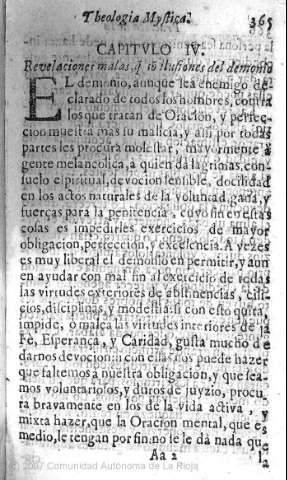 Theologia Mystica. 365
CAPITVLO IV.
Revelaciones malas, q̃ sõ ilusiones del demonio
EL demonio, aunque sea enemigo de
clarado de todos los hombres, contra
los que tratan de Oracion, y perfec-
cion muestra mas su malicia, y assi por todas
partes les procura molestar, mayormente à
gente melancolica, a quien dà lagrimas, con-
suelo espiritual, devocion sensible, docilidad
en los actos naturales de la voluntad, gana, y
fuerças para la penitencia, cuyo fin en estas
colas es impedirles exercicios de mayor
obligacion, perfeccion, y excelencia. A vezes
es muy liberal el demonio en permitir, y aun
en ayudar con mal fin al exercicio de todas
las virtudes exteriores de abstinencias, cili-
cios, disciplinas, y modestia: si con esto quita,
impide, ò malea las virtudes interiores de
Fè, Esperança, y Caridad, gusta mucho de
darnos devocion: si con ella nos puede hazer
que faltemos a nuestra obligacion, y que sea-
mos voluntariosos, y duros de juyzio, procu
ra bravamente en los de la vida activa, y
mixta hazer, que la Oracion mental, que es
medio, le tengan por fin: no se le dà nada que
Aa 2
© 2007 Comunidad Autónoma de La Rioja